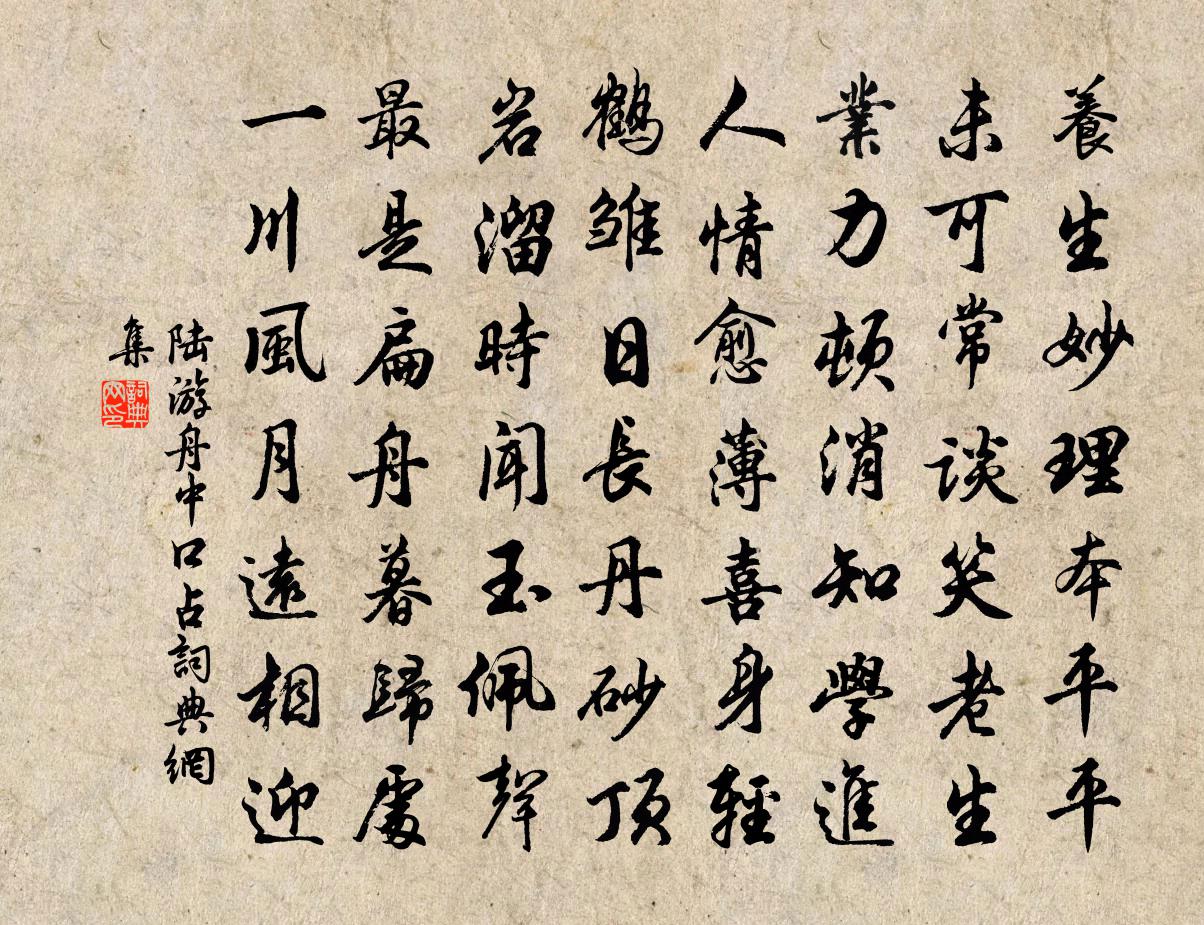 養生妙理本平平
未可常談笑老生
業力頓消知學進
人情愈薄喜身輕
鶴雛日長丹砂頂
岩溜時聞玉佩聲
最是扁舟暮歸處
一川風月遠相迎
陸游舟中口占詞典網
集
詞典網印